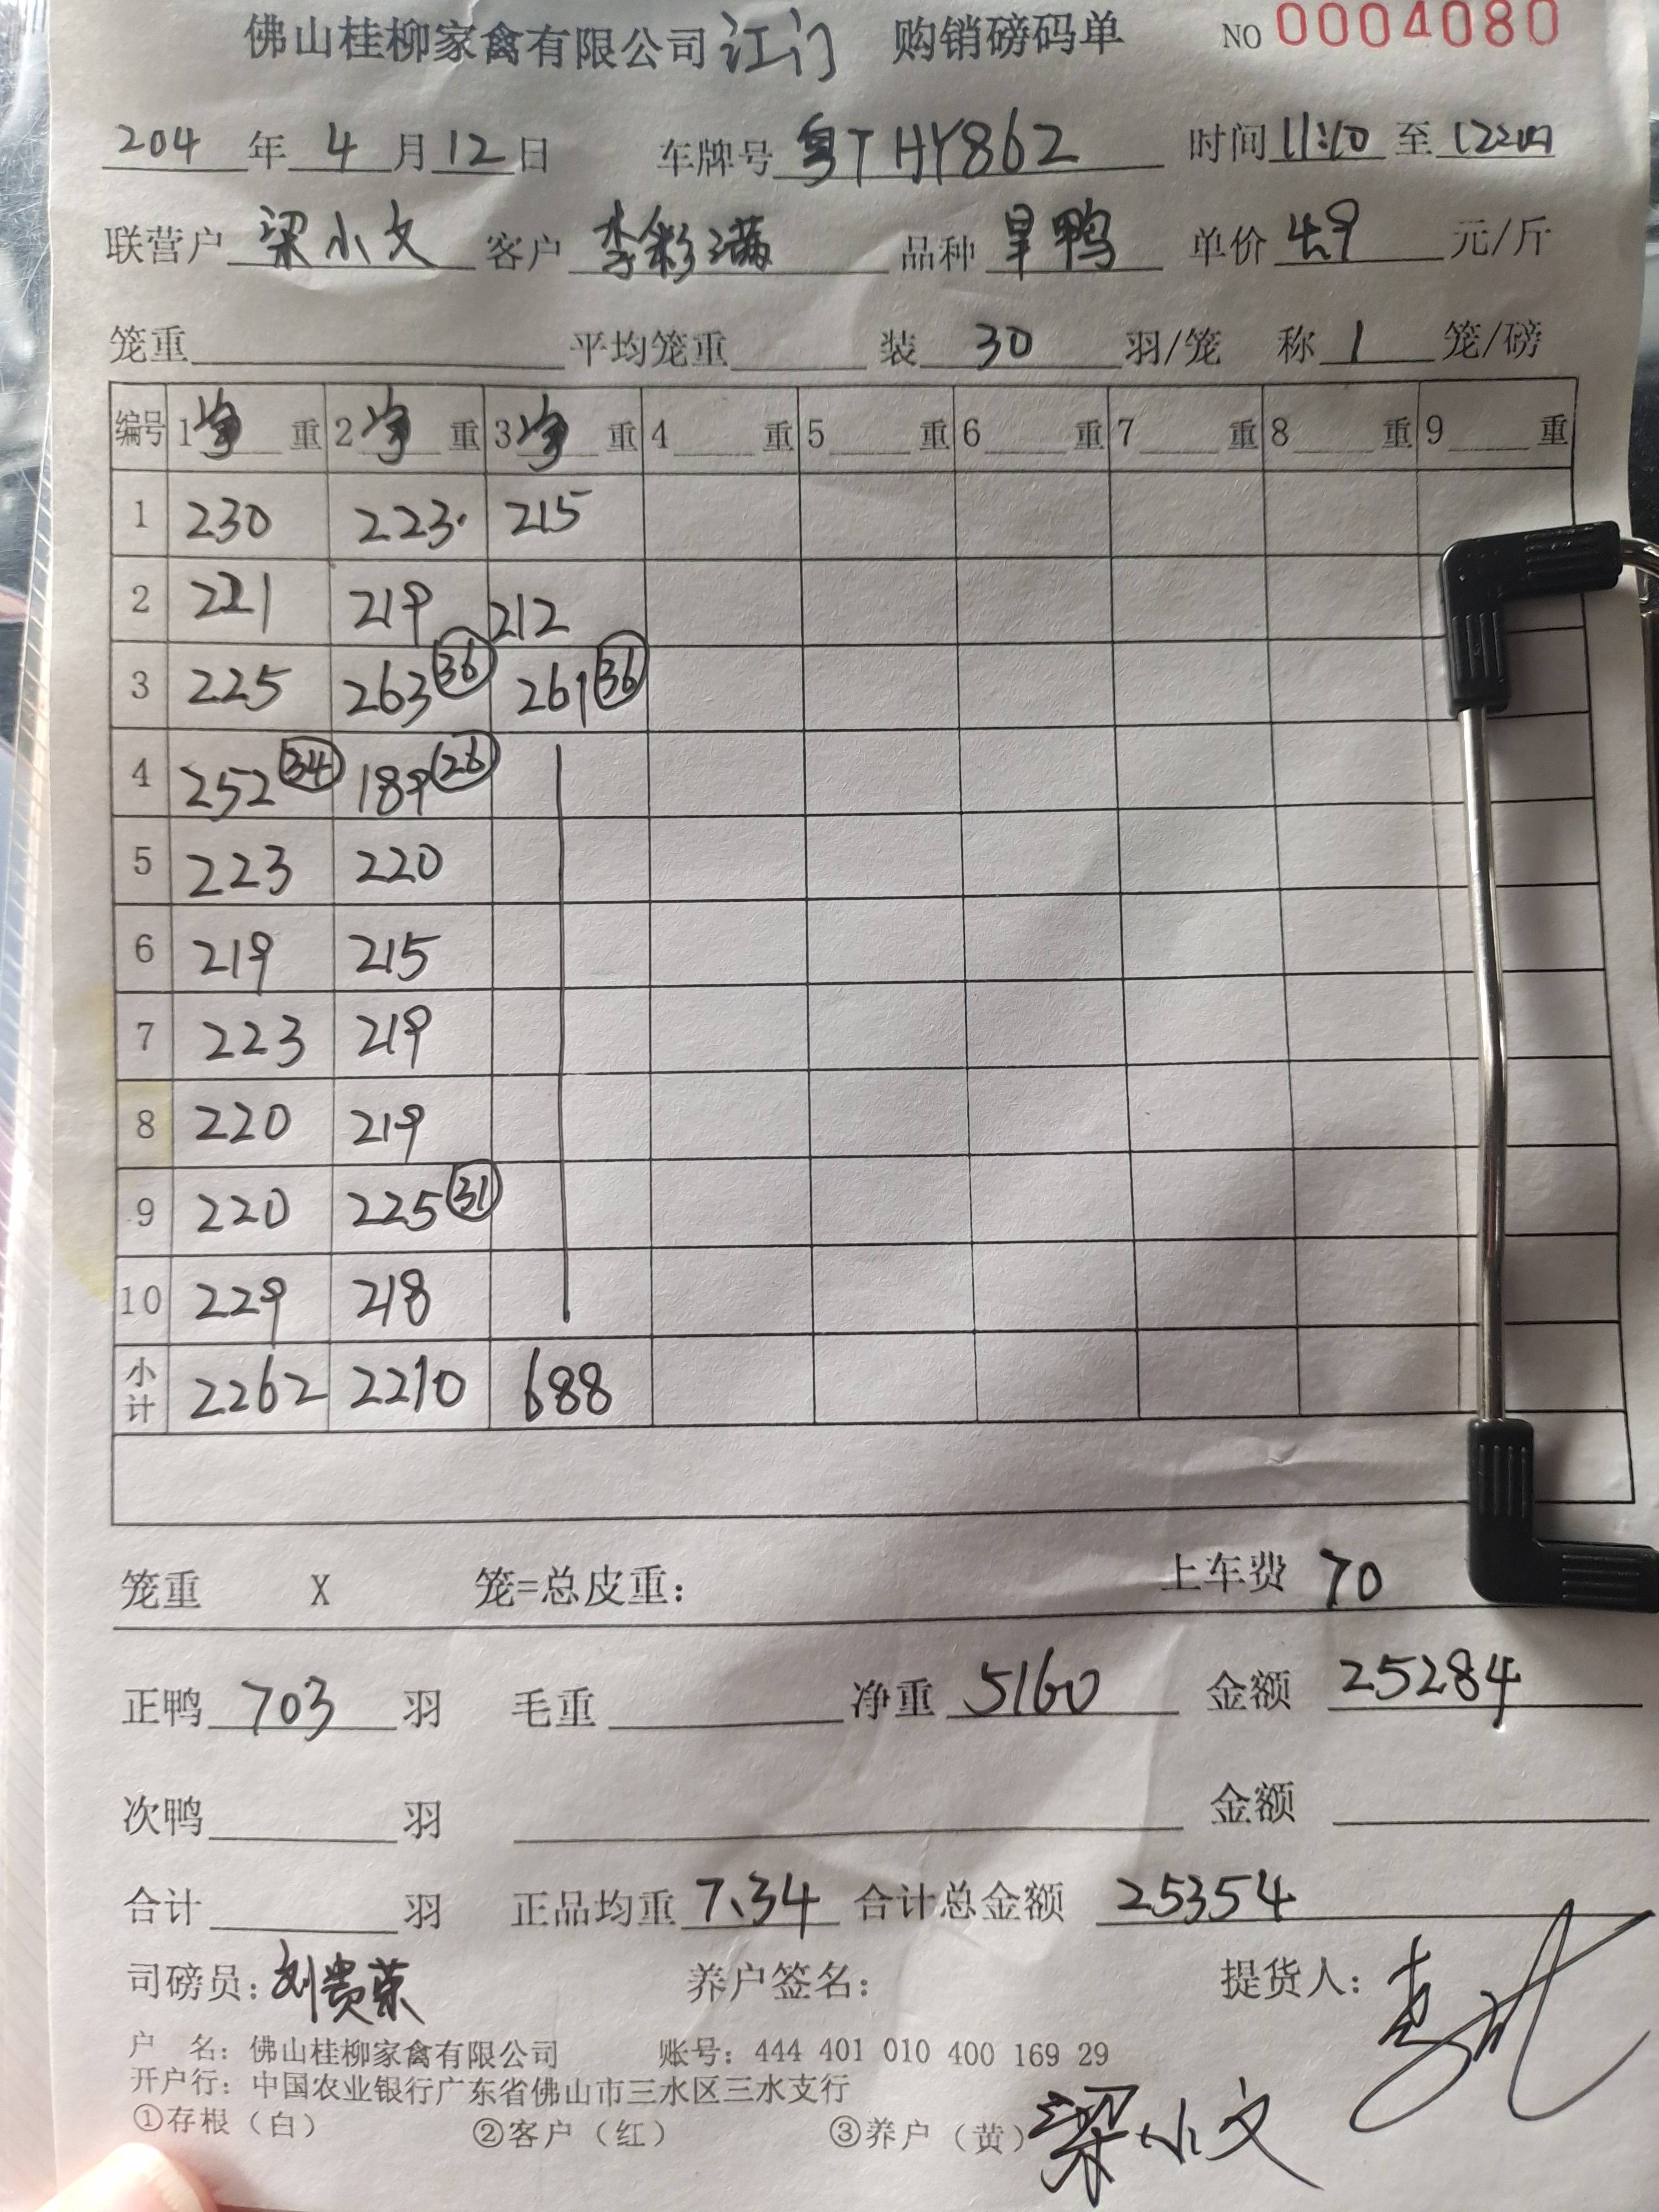 佛山桂柳家禽有限公司 江门 购销磅码单 NO 0004080
204 年 4 月 12 日 车牌号 粤T HY862 时间 11:10 至
联营户 梁小文 客户 李彩满 品种 旱鸭 单价 4.9 元/斤
笼重 平均笼重 装 30 羽/笼 称 1 笼/磅
编号 1 重 2 重 3 重 4 重 5 重 6 重 7 重 8 重 9 重
1 230 223. 215
2 221 219 212
3 225 263 36 261 36
4 252 34 189 26
5 223 220
6 219 215
7 223 219
8 220 219
9 220 225 31
10 229 218
小计 2262 2210 688
笼重 X 笼=总皮重: 上车费 70
正鸭 703 羽 毛重 净重 5160 金额 25284
次鸭 羽 金额
合计 羽 正品均重 7.34 合计总金额 25354
司磅员: 刘贵荣 养户签名: 提货人:
户 名: 佛山桂柳家禽有限公司 账号: 444 401 010 400 169 29
开户行: 中国农业银行广东省佛山市三水区三水支行
①存根（白） ②客户（红） ③养户（黄） 梁小文